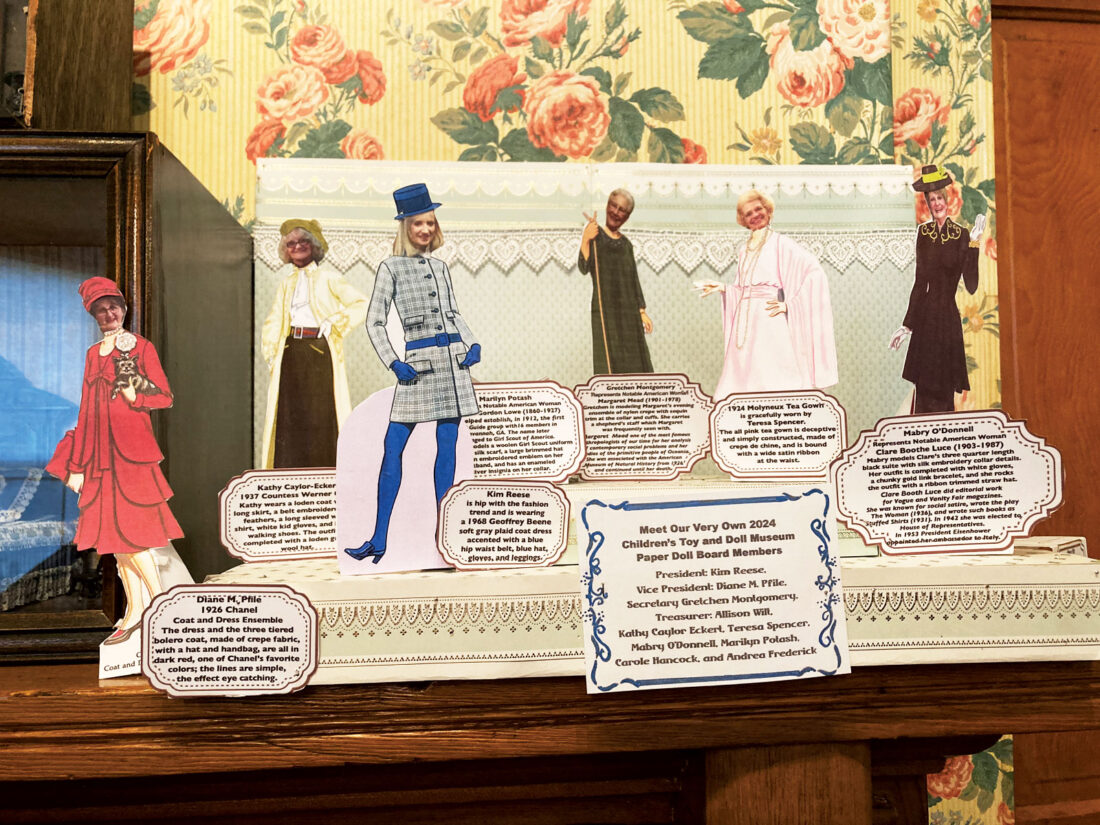 Diane M. Pfile
1926 Chanel
Coat and Dress Ensemble
The dress and the three tiered
bolero coat, made of crepe fabric,
with a hat and handbag, are all in
dark red, one of Chanel's favorite
colors; the lines are simple,
the effect eye catching.
Coat and
Kathy Caylor-Ecker
1937 Countess Werner
Kathy wears a loden coat
long skirt, a belt embroidered
feathers, a long sleeved
shirt, white kid gloves, and
walking shoes. The outfi
completed with a loden g
wool hat.
Marilyn Potash
s Notable American Woman
Gordon Lowe (1860-1927)
elped establish, in 1912, the first
Guide group with 16 members in
vannah, GA. The name later
ged to Girl Scout of America.
odels a woolen Girl Scout uniform
silk scarf, a large brimmed hat
n embroidered emblem on her
band, and has an enameled
lver insignia on her collar.
Kim Reese
is hip with the fashion
trend and is wearing
a 1968 Geoffrey Beene
soft gray plaid coat dress
accented with a blue
hip waist belt, blue hat,
gloves, and leggings.
Gretchen Montgomery
Represents Notable American Woman
Margaret Mead (1901-1978)
Gretchen is modeling Margaret's evening
ensemble of nylon crepe with sequin
trim at the collar and cuffs. She carries
a shepherd's staff which Margaret
was frequently seen with.
Margaret Mead one of the most famous
thropologists of our time for her analysis
contemporary social problems and her
udies of the primitive people of Oceania,
She was associated with the American
Museum of Natural History from 1926
and continued until her death.
1924 Molyneux Tea Gown
is gracefully worn by
Teresa Spencer.
The all pink tea gown is deceptive
and simply constructed, made of
crepe de chine, and is bound
with a wide satin ribbon
at the waist.
Mabry O'Donnell
Represents Notable American Woman
Clare Boothe Luce (1903-1987)
Mabry models Clare's three quarter length
black suite with silk embroidery collar details.
Her outfit is completed with white gloves,
a chunky gold link bracelet, and she rocks
the outfit with a ribbon trimmed straw hat.
Clare Booth Luce did editorial work
for Vogue and Vanity Fair magazines.
She was known for social satire, wrote the play
The Woman (1936), and wrote such books as
Stuffed Shirts (1931). In 1942 she was elected to
House of Representatives.
In 1953 President Eisenhower
appointed her ambassador to Italy.
Meet Our Very Own 2024
Children's Toy and Doll Museum
Paper Doll Board Members
President: Kim Reese.
Vice President: Diane M. Pfile.
Secretary Gretchen Montgomery.
Treasurer: Allison Will.
Kathy Caylor Eckert, Teresa Spencer.
Mabry O'Donnell, Marilyn Potash.
Carole Hancock, and Andrea Frederick